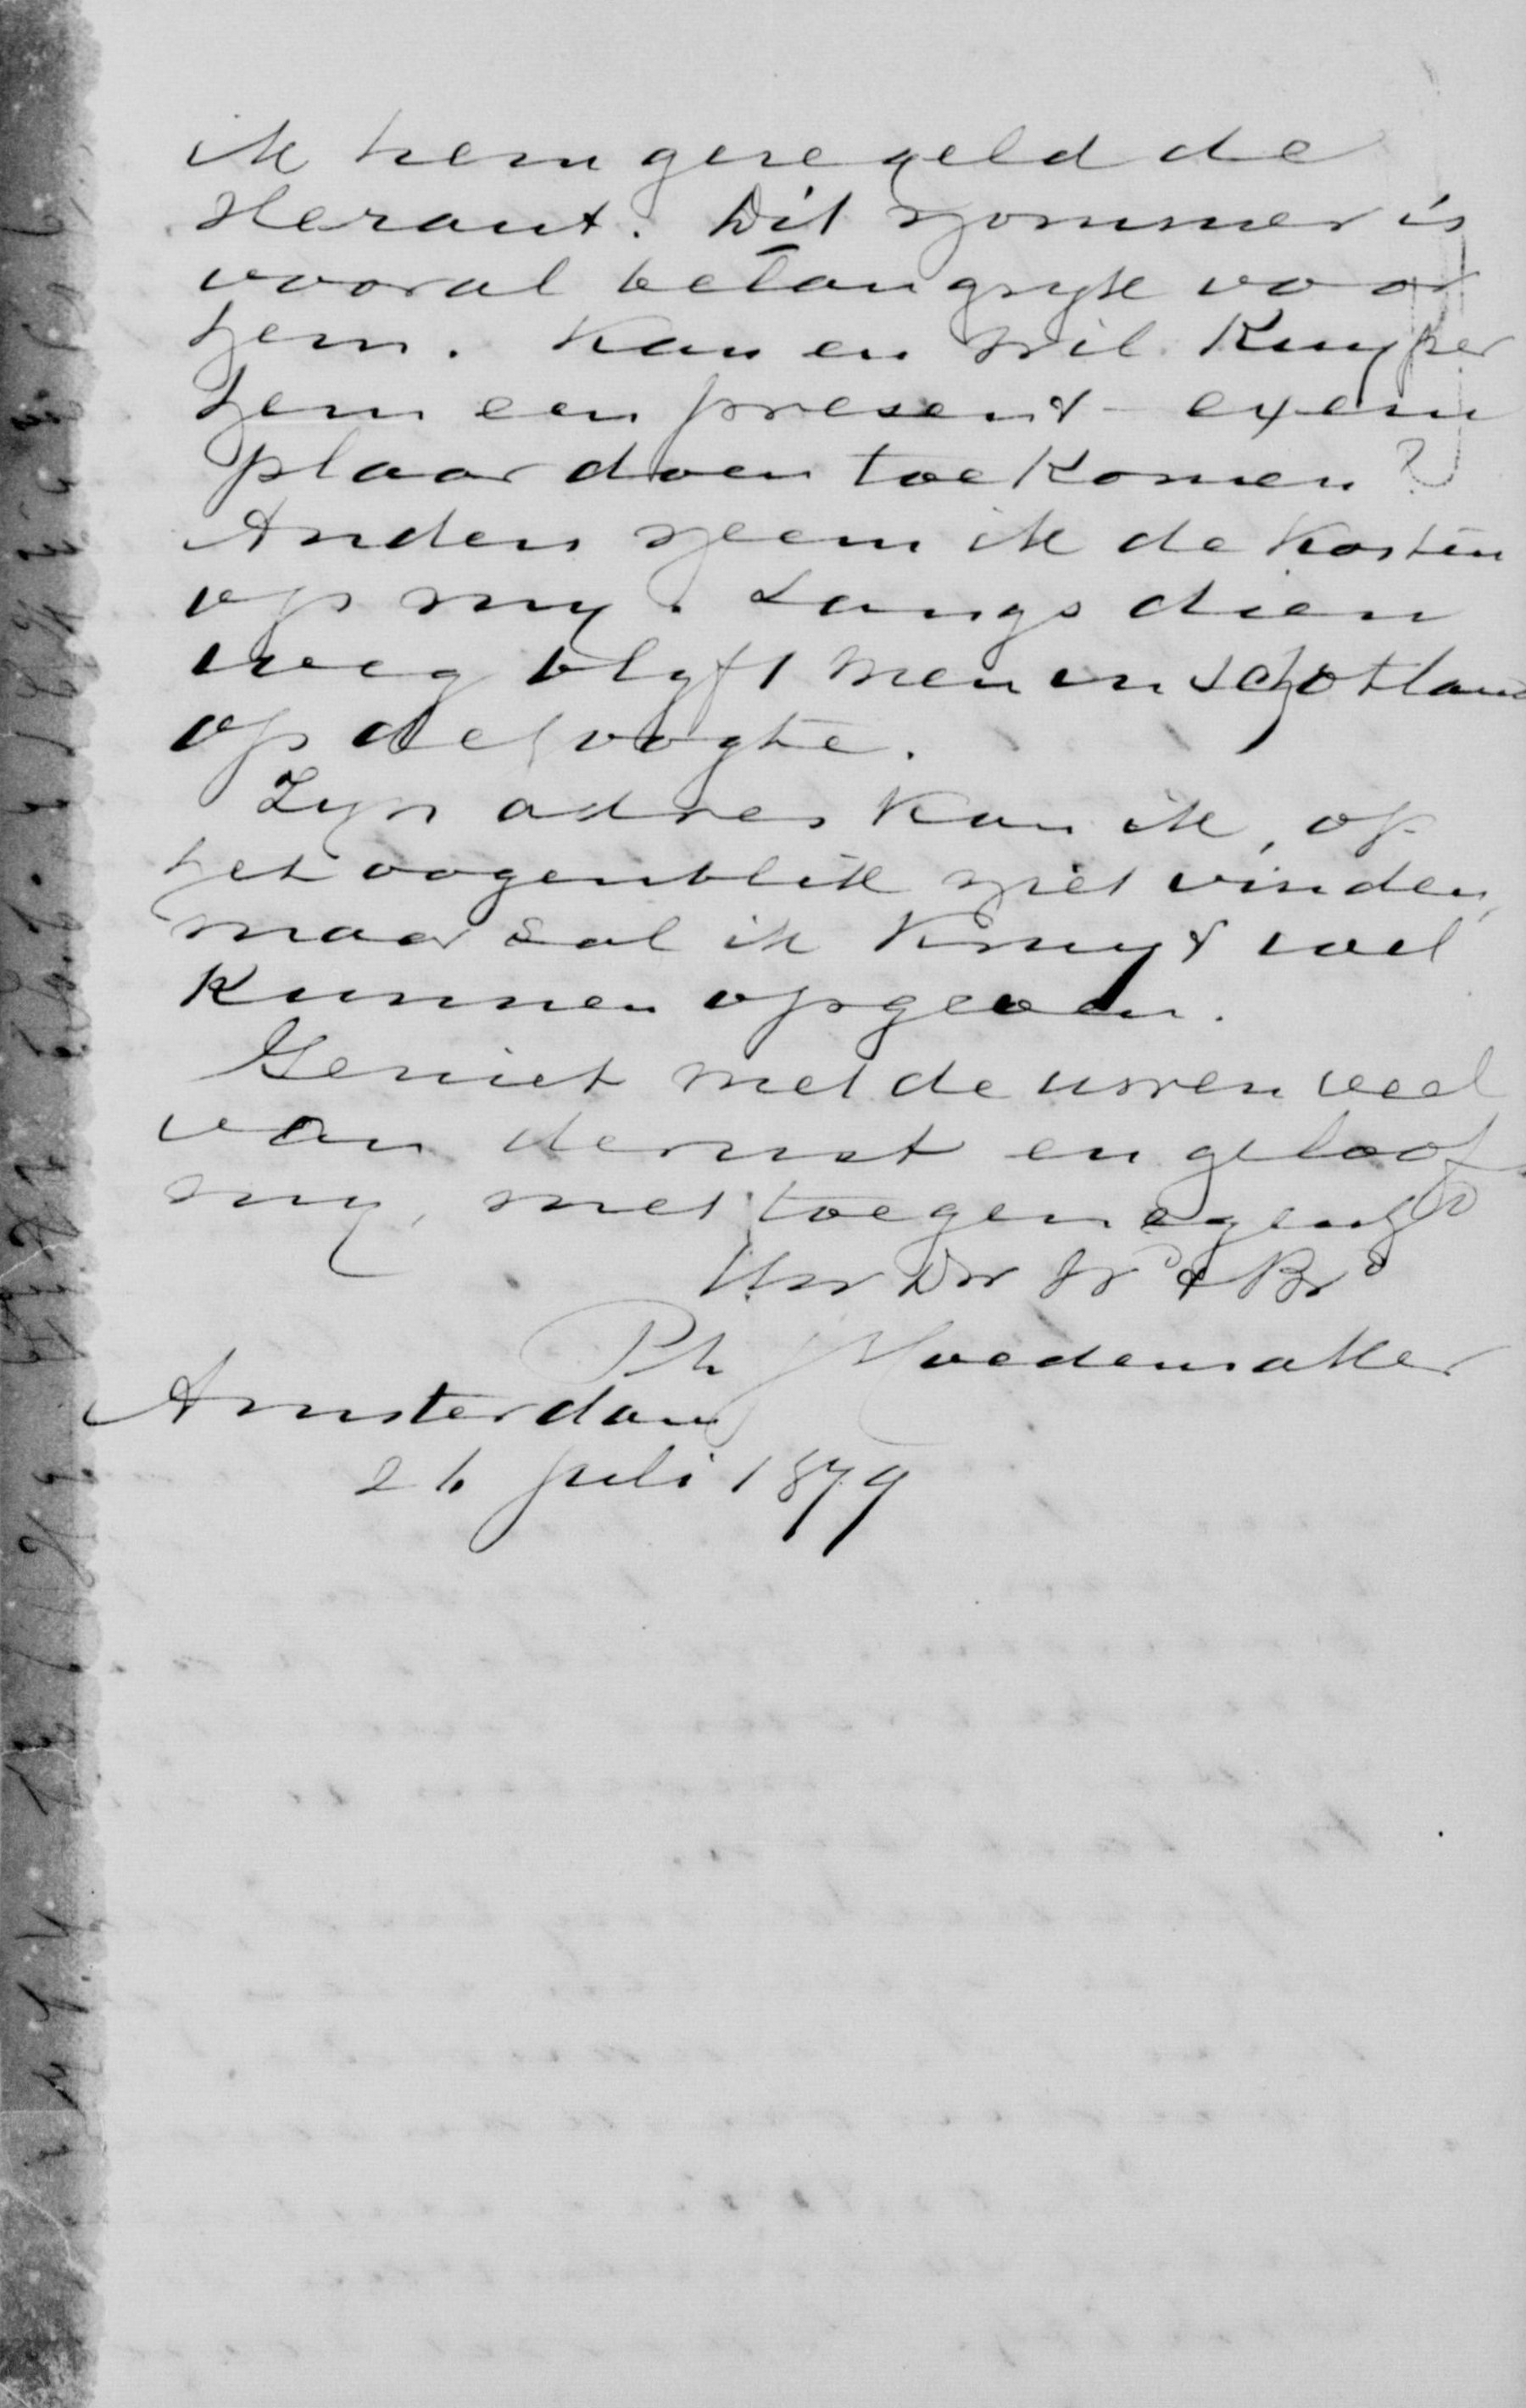 ik hem geregeld de
Heraut. Dit nommer is
vooral belangryk voor
hem. Kan en wil Kuyper
hem een present-exem
plaar doen toekomen?
Anders neem ik de kosten
op my. Langs dien
weg blyft men in Schotland
op de hoogte.
Zyn adres kan ik, op
het oogenblik niet vinden,
maar zal ik Kruyt wel
kunnen opgeven.
Geniet met de uwen veel
van de rust en geloof
my, met toegenegenh
Uw Dw Vr & Br
Ph J Hoedemaker
Amsterdam
26 Juli 1879